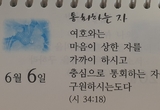 통회하는 자
여호와는
마음이 상한 자를
가까이 하시고
충심으로 통회하는 자
구원하시는도다
(시 34:18)
6월 6일